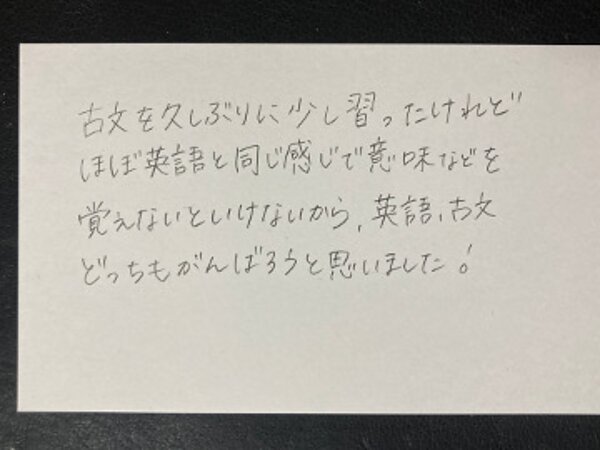 古文を久しぶりに少し習ったけれど
ほぼ英語と同じ感じで意味などを
覚えないといけないから、英語、古文
どっちもがんばろうと思いました!